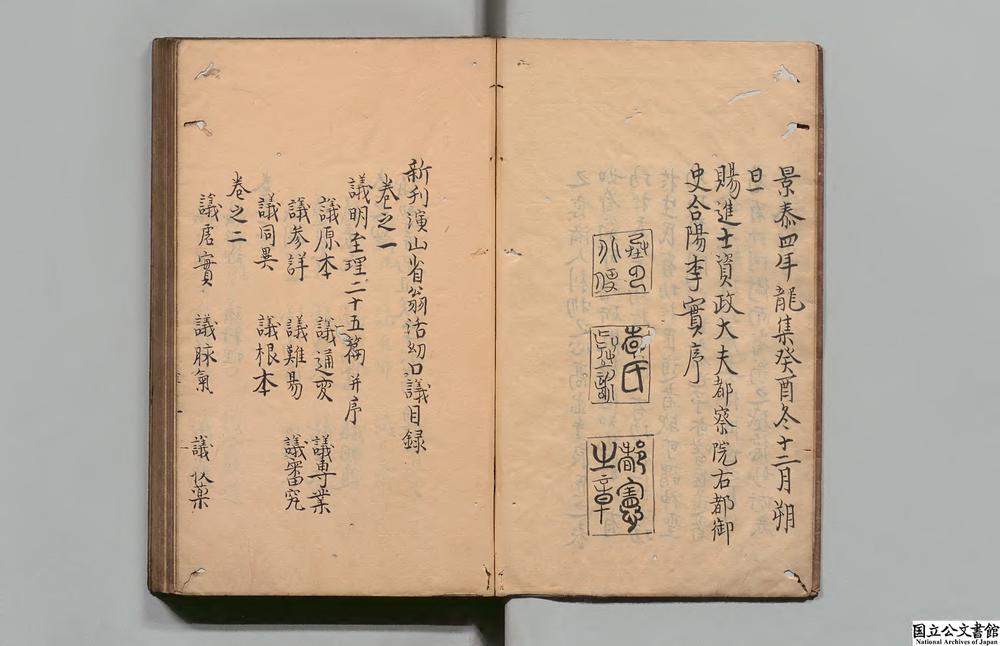 景泰四年龍集癸酉冬十二月朔
旦
賜進士資政大夫都察院右都御
史合陽李實序
李氏
都憲之章
新刋演山省翁活幼口議目録
卷之一
議明至理二十五篇 并序
議原本 議通变 議專業
議參詳 議難昜 議審究
議同異 議根本
卷之二
議虗實 議脉氣 議伏藥
国立公文書館
National Archives of Japan